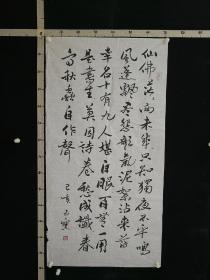 仙佛茫茫两未成只知独夜不平鸣
风蓬飘尽悲歌气泥絮沾来薄
幸名十有九人堪白眼百无一用
是书生莫因诗卷愁成谶春
鸟秋虫自作声
己亥